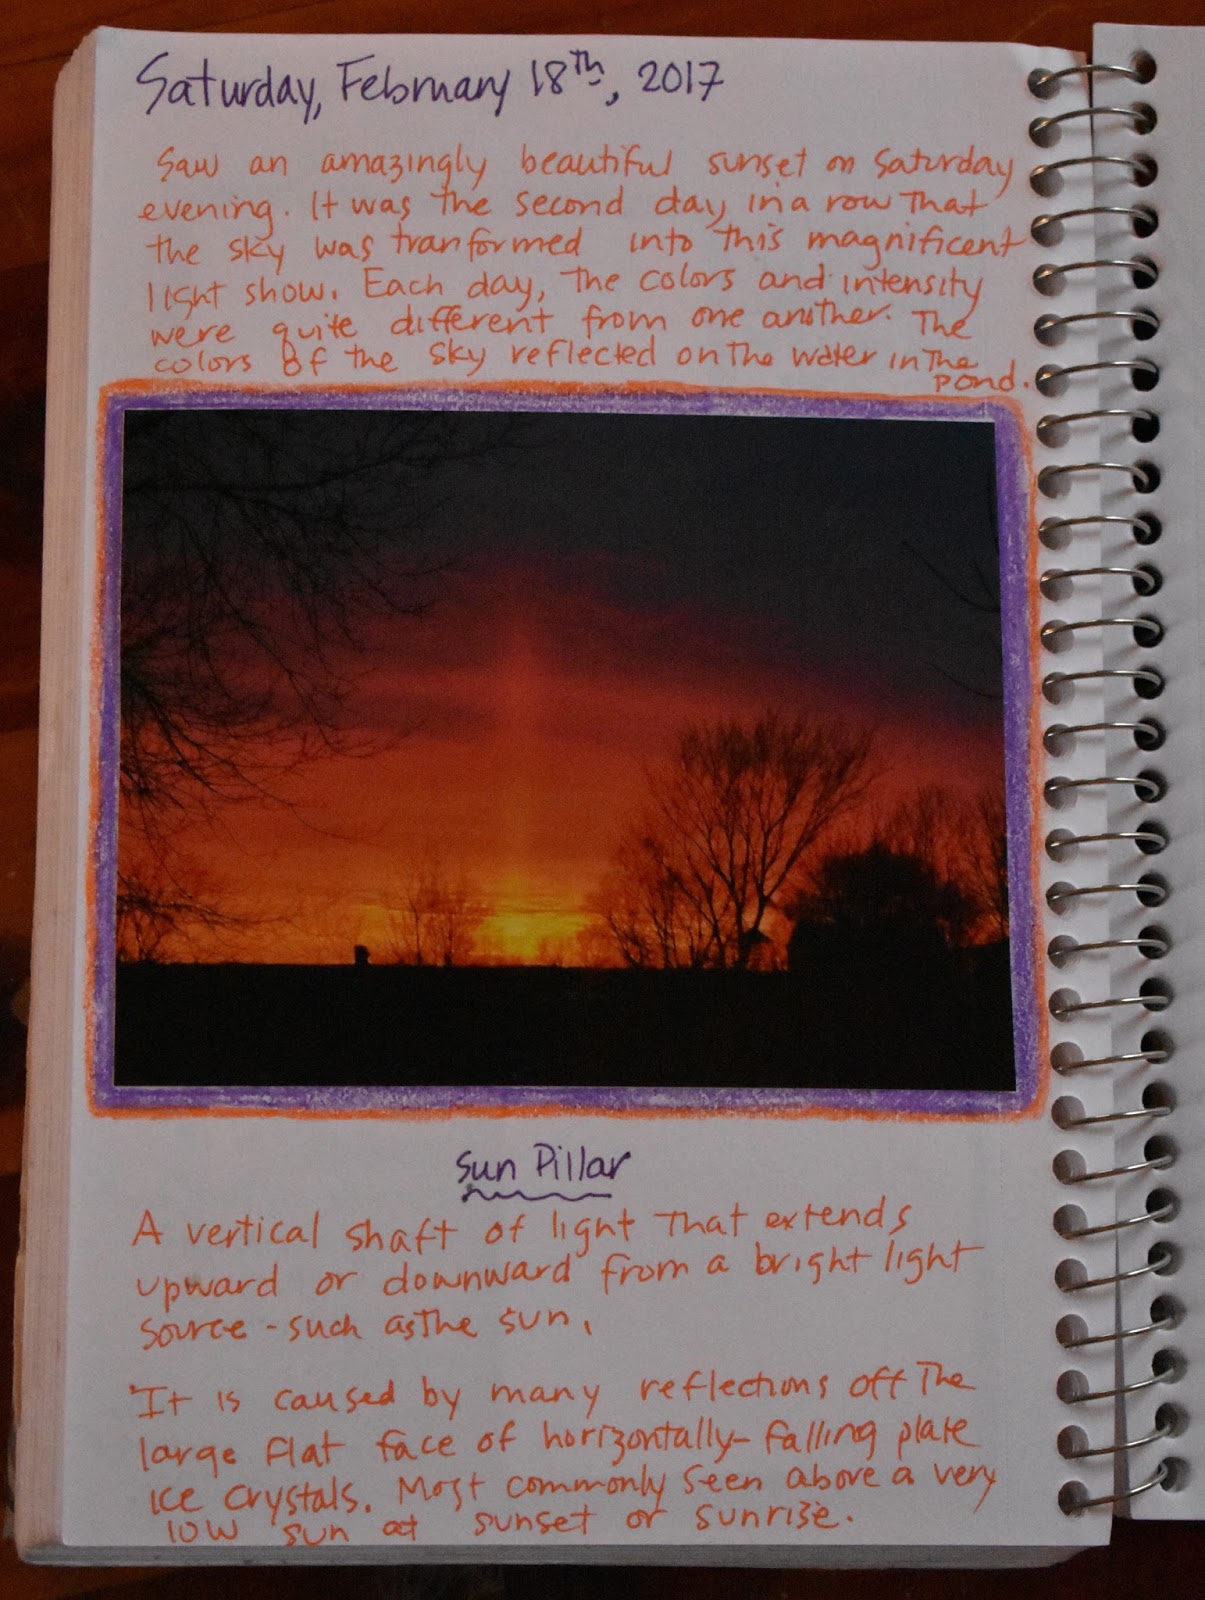 Saturday, February 18th, 2017
Saw an amazingly beautiful sunset on Saturday
evening. It was the second day in a row that
the sky was tranformed into this magnificent
light show. Each day, the colors and intensity
were quite different from one another. The
colors of the sky reflected on the water in the
pond.
Sun Pillar
A vertical shaft of light that extends
upward or downward from a bright light
source - such as the sun.
It is caused by many reflections off the
large flat face of horizontally-falling plate
ice crystals. Most commonly seen above a very
low sun at sunset or sunrise.